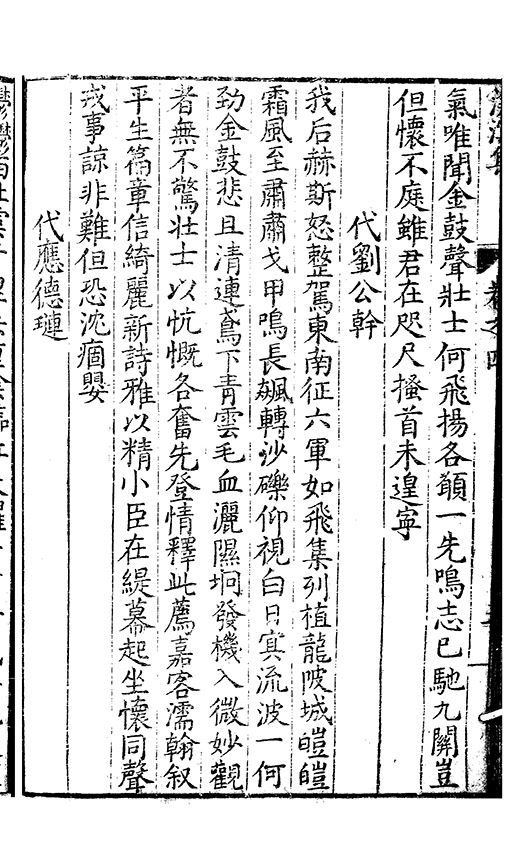 氣唯聞金鼓聲壯士何飛揚各顓一先鳴志已馳九關豈
但懷不庭雖君在咫尺搔首未遑寧
代劉公幹
我后赫斯怒整駕東南征六軍如飛集列植龍陂城皚皚
霜風至肅肅戈甲鳴長飆轉沙礫仰視白日冥流波一何
勁金鼓悲且清連鳶下青雲毛血灑隰坰發機入微妙觀
者無不驚壯士以忼慨各奮先登情釋此薦嘉客濡翰叙
平生篇章信綺麗新詩雅以精小臣在緹幕起坐懷同聲
戎事諒非難但恐沈痼嬰
代應德璉